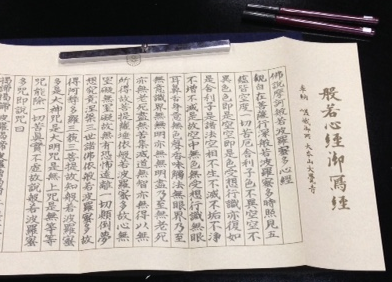 般若心経御寫経
奉納 嵯峨御所 大本山大覺寺
佛説摩訶般若波羅蜜多心経
観自在菩薩行深般若波羅蜜多時照見五
蘊皆空度一切苦厄舎利子色不異空空不
異色色即是空空即是色受想行識亦復如
是舎利子是諸法空相不生不滅不垢不浄
不増不減是故空中無色無受想行識無眼
耳鼻舌身意無色聲香味觸法無眼界乃至
無意識界無無明亦無無明盡乃至無老死
亦無老死盡無苦集滅道無智亦無得以無
所得故菩提薩埵依般若波羅蜜多故心無
罣礙無罣礙故無有恐怖遠離一切顛倒夢
想究竟涅槃三世諸佛依般若波羅蜜多故
得阿耨多羅三藐三菩提故知般若波羅蜜
多是大神咒是大明咒是無上咒是無等等
咒能除一切苦真實不虚故説般若波羅蜜
多咒即説咒曰